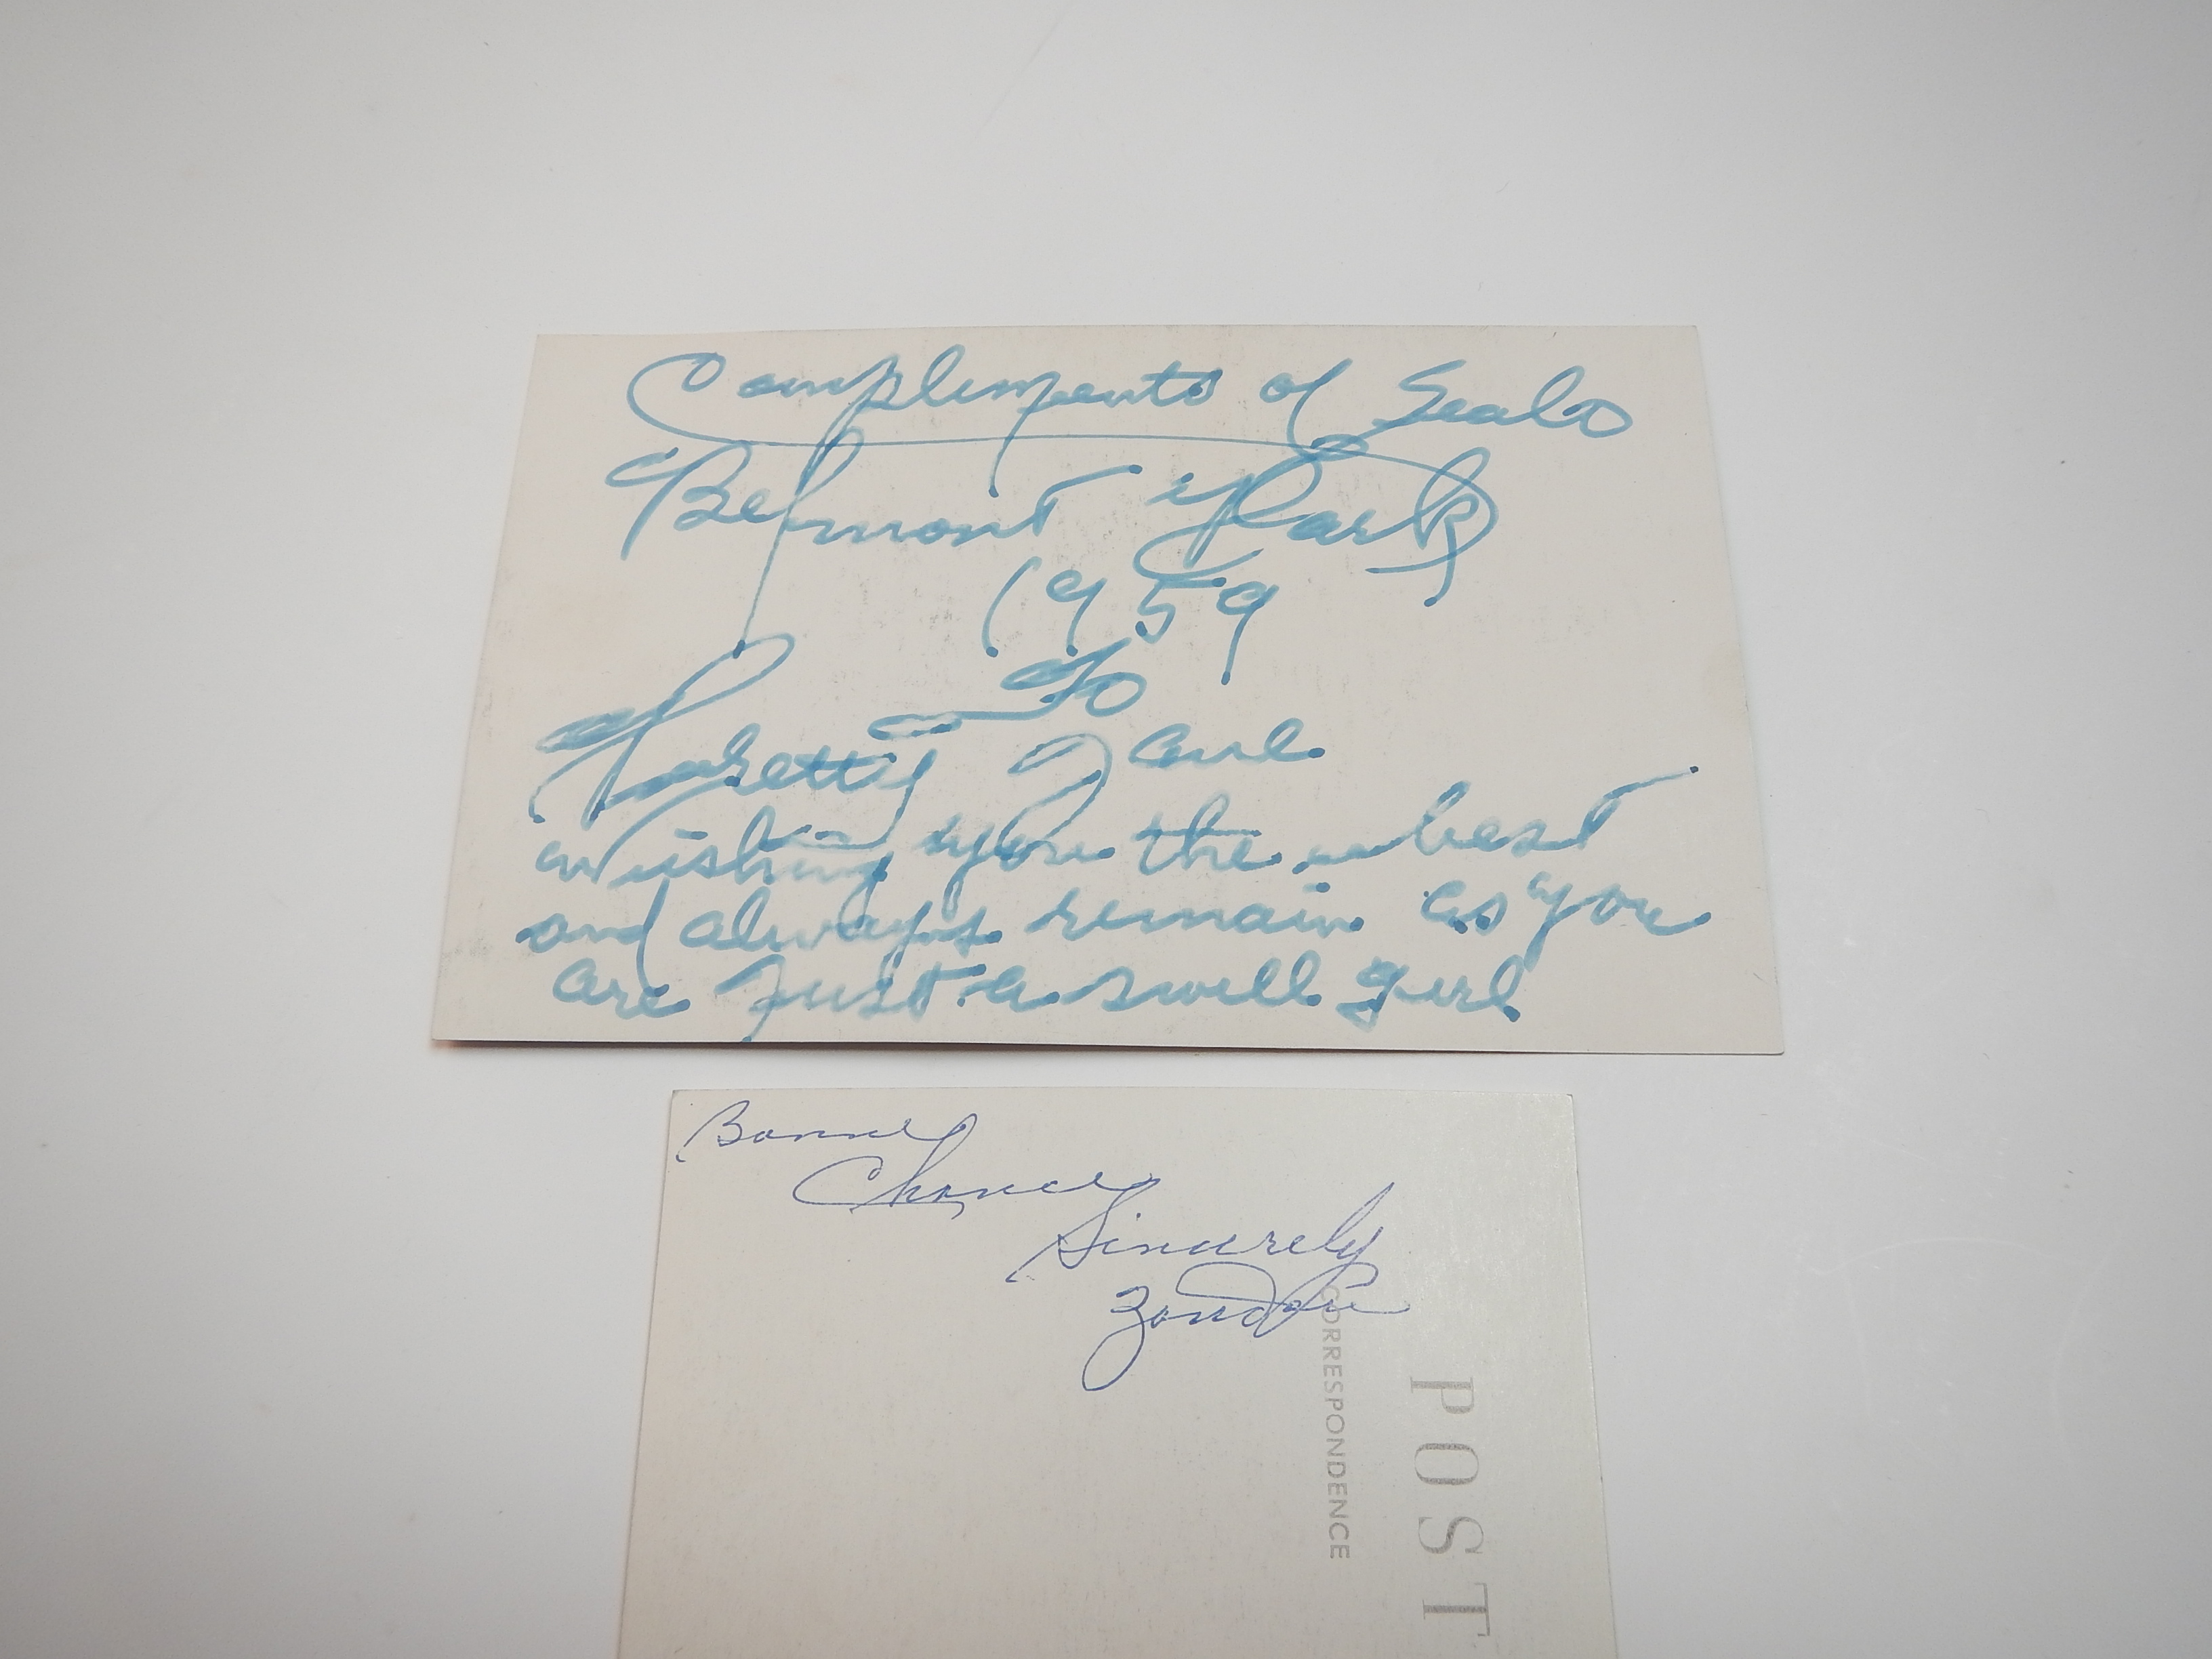 Compliments of Sealo
Belmont Park
1959
To
Jane
wishing you the best
and always remain as you
are just a swell girl
Bonne
Chance
Sincerely
CORRESPONDENCE
POST